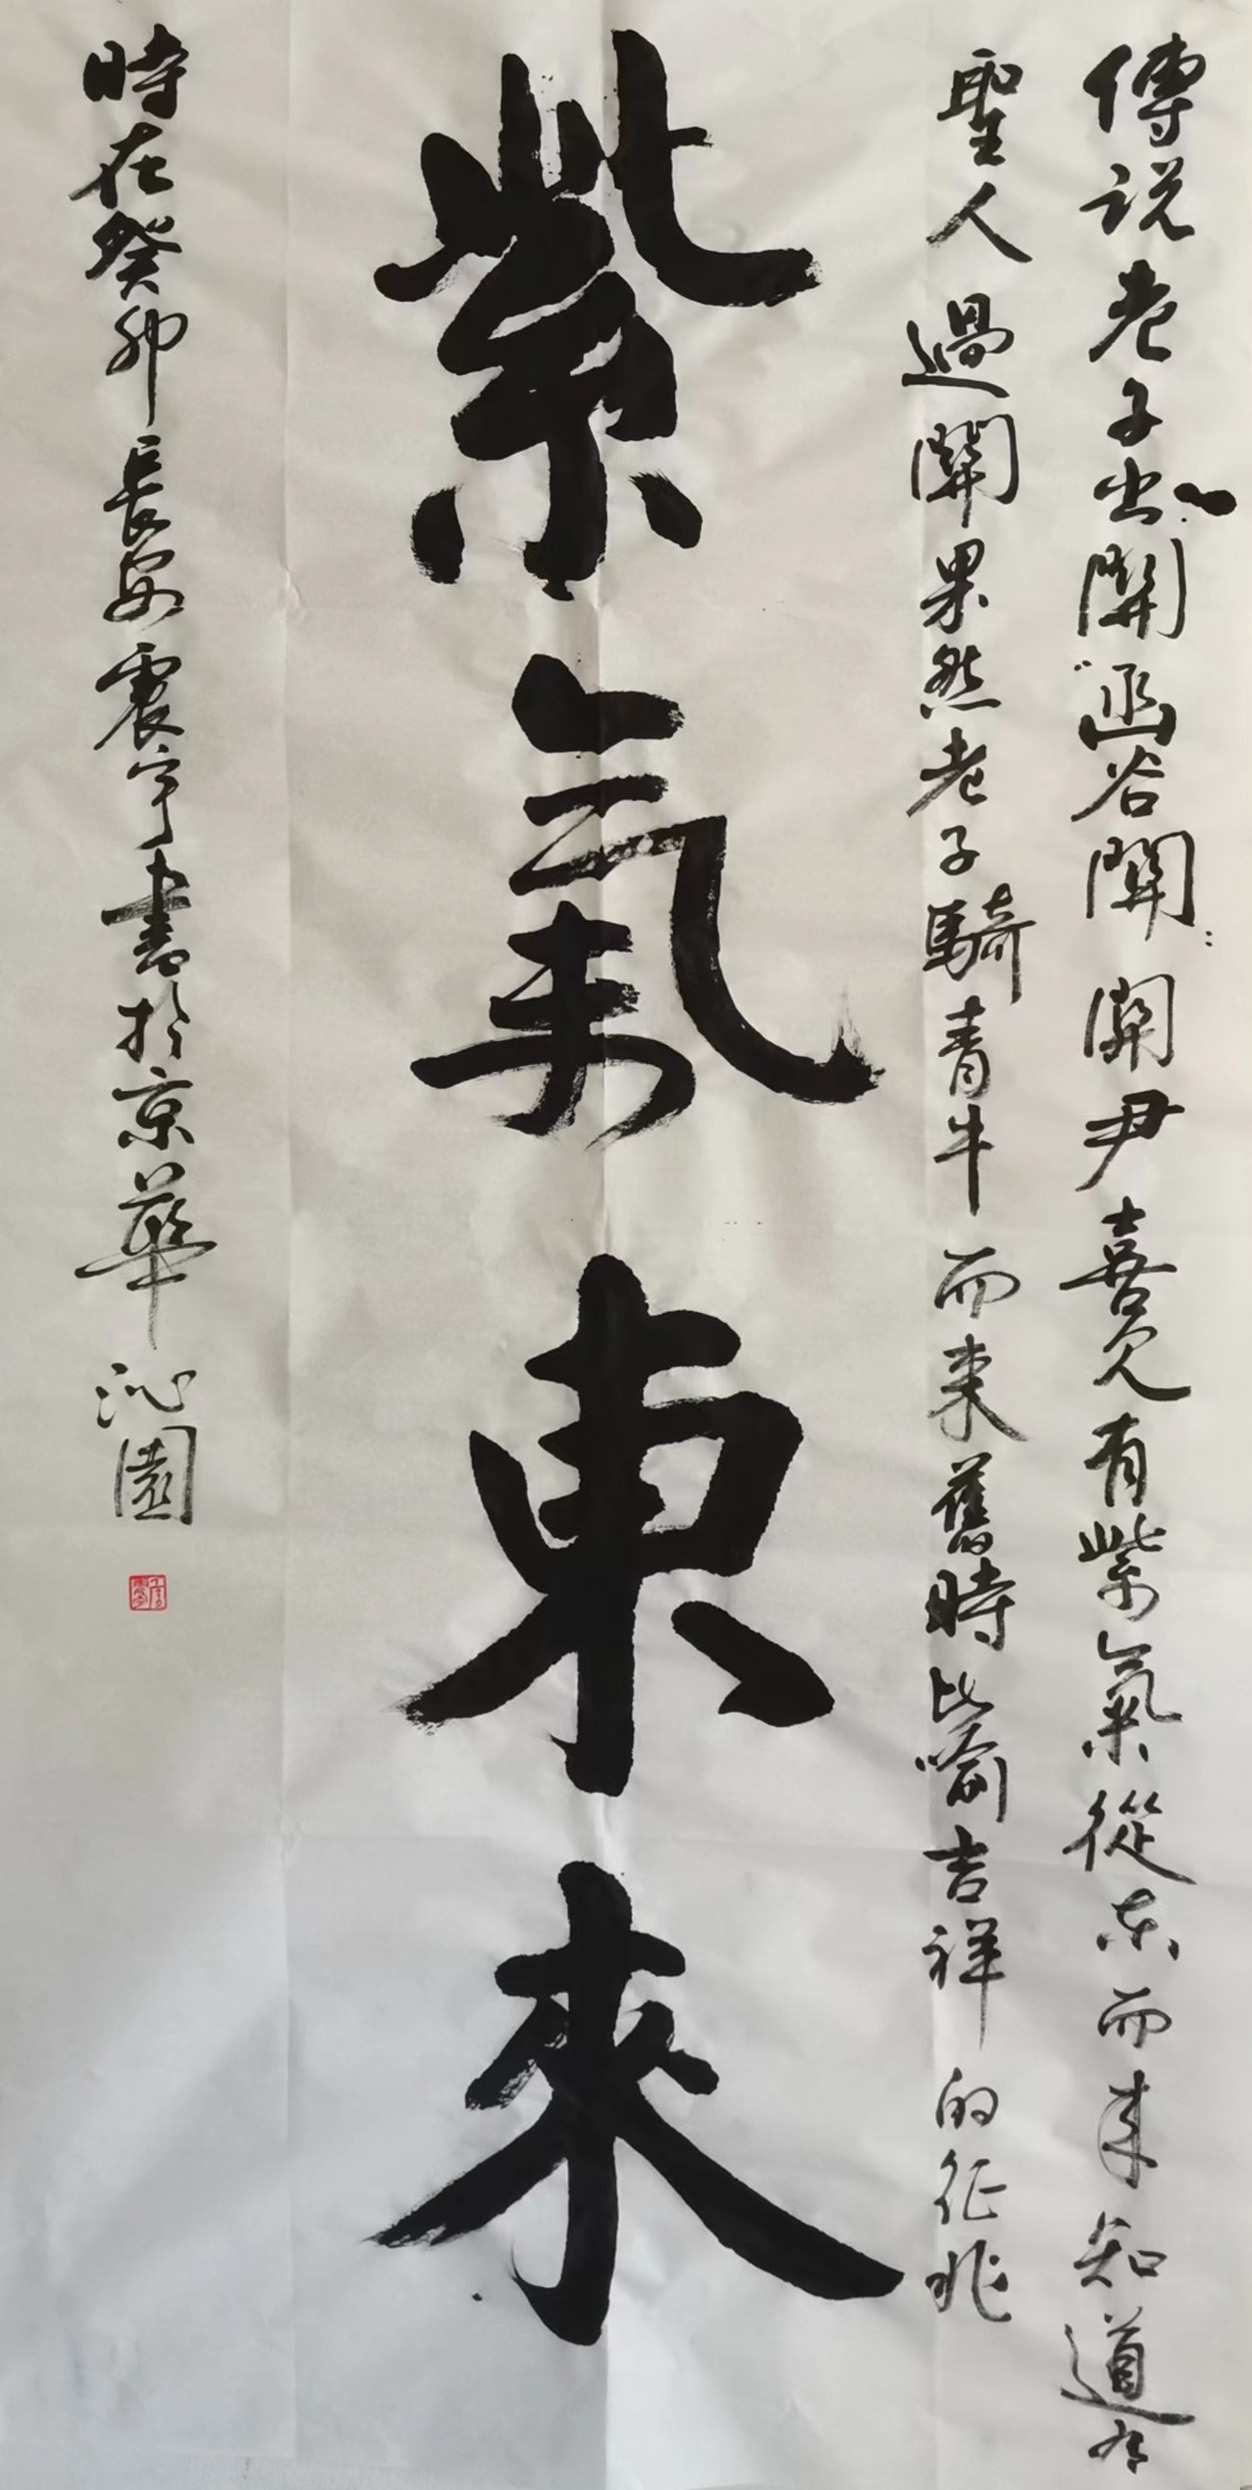 傳説老子出關函谷關關尹喜見有紫氣從东而来知道有
聖人過關果然老子騎青牛而来舊時比喻吉祥的征兆
紫氣東來
時在癸卯長安震宇書於京華沁園